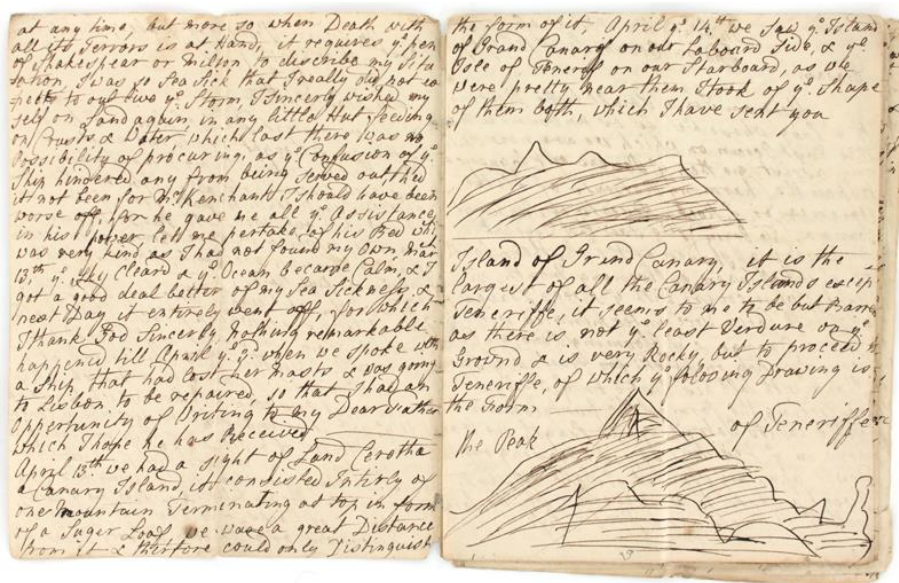 at any time, but more so when Death with
all its Terrors is at Hand, it requires yᵉ pen
of Shakespear or Milton to describe my Situ
ation I was so Sea Sick that I really did not ex
pect to out live yᵉ Storm, I Sincerly wished my
self on Land again, in any little Hut, feeding
on Crusts & Water, which last there was no
Possibility of procuring, as yᵉ Confusion of yᵉ
Ship hindered any from being Served out, had
it not been for Mʳ Kenchant I should have been
worse off, for he gave me all yᵉ Assistance
in his power let me pertake of his Bed whi
was very kind as I had not found my own, Mar
13ᵗʰ yᵉ Sky Cleard & yᵉ Ocean became Calm, & I
got a good deal better of my Sea Sickness, &
next Day it entirely went off, for which
I thank God Sincerly, nothing remarkable
happened till April yᵉ when we spoke with
a Ship, that had lost her Masts & was going
to Lisbon to be repaired, so that I had an
Opportunity of Writing to my Dear Father
which I hope he has Received
April 13ᵗʰ we had a sight of Land
a Canary Island, it consisted Intirly of
one Mountain Terminating at top in form
of a Suger Loaf we were a great Distance
from it & therfore could only Distinguish
the form of it, April yᵉ 14ᵗʰ we saw yᵉ Island
of Grand Canary on our Laboard Side, & yᵉ
Isle of Teneriff on our Starboard, as we
were pretty near them I took of yᵉ Shape
of them both, which I have sent you
Island of Grand Canary, it is the
largest of all the Canary Islands excep
Teneriffe, it seems to me to be but Barren
as there is not yᵉ least Verdure on yᵉ
Ground & is very Rocky, but to proceed
Teneriffe, of which yᵉ following Drawing is
the Form
the Peak of Teneriffe